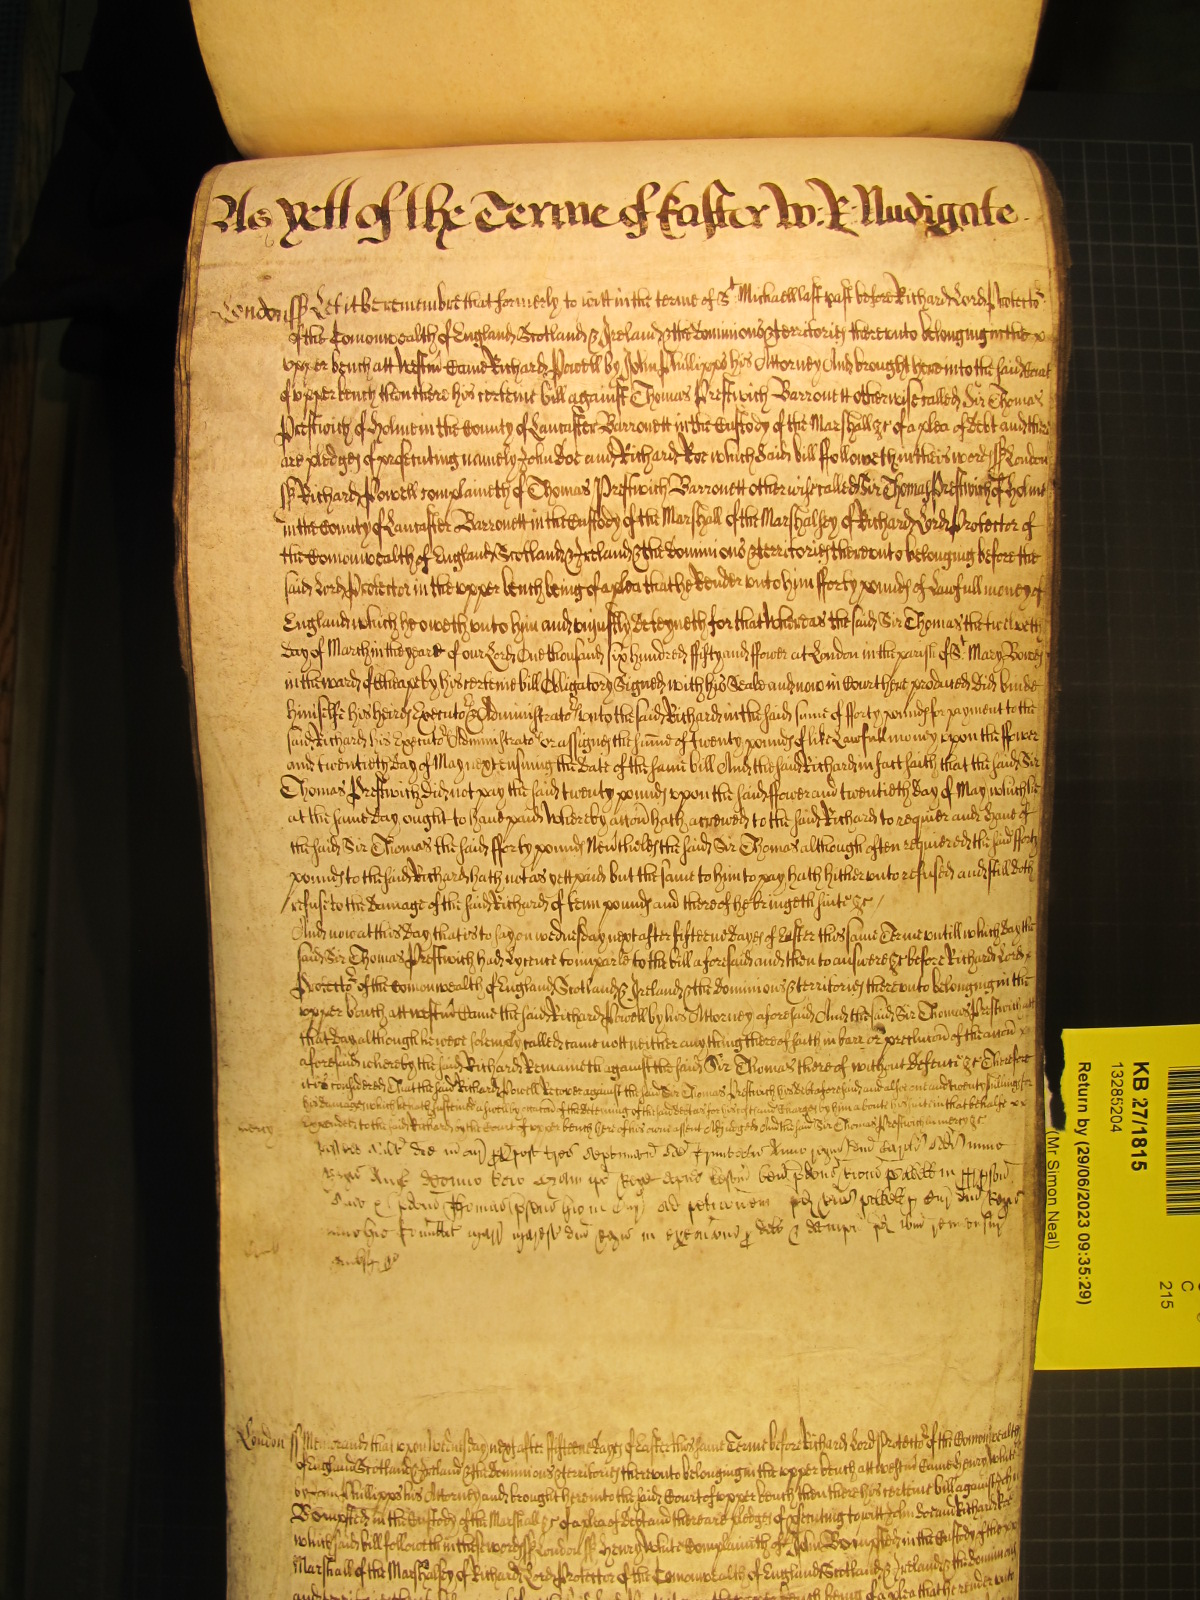 As yett of the Terme of Easter W: R: Nudigate
London ss Let it be remembred that formerly to witt in the terme of St Michaell last past before Richard Lord Protector
of the Comonwealth of England Scotland & Ireland & the dominions & territories thereunto belonging in the
upper bench att Westm̃ Came Richard Powell by John Phillipps his Attorney And brought here into the said Court
of upper bench then there his certeine bill against Thomas Prestwich Barronett otherwise called Sir Thomas
Prestwich of Holme in the County of Lancaster Barronett in the Custody of the Marshall &c of a plea of debt and there
are pledges of prosecuting namely John Doe and Richard Roe which said bill followeth in theis words ss London
ss Richard Powell complaineth of Thomas Prestwich Barronett otherwise called Sir Thomas Prestwich of Holme
in the County of Lancaster Barronett in the Custody of the Marshall of the Marshalsey of Richard Lord Protector of
the Comonwealth of England Scotland & Ireland & the dominions & territories thereunto belonging before the
said Lord Protector in the upper bench being of a plea that he Render unto him fforty pounds of Lawfull money of
England which he oweth unto him and uniustly deteyneth for that Whereas the said Sir Thomas the twelveth
day of March in the yeare of our Lord One thousand six hundred fifty and ffower at London in the parish of St Mary Bowe
in the ward of Cheape by his certeine bill Obligatory Signed with his Seale and now in Court here produced did binde
himselfe his heires Executors & Administrators unto the said Richard in the said some of fforty pounds for payment to the
said Richard his Executors Administrators or assignes the sume of twenty pounds of like Lawfull money upon the ffower
and twentieth day of May next ensuing the date of the same bill And the said Richard in fact saith that the said Sir
Thomas Prestwich did not pay the said twenty pounds upon the said ffower and twentieth day of May which he
at the same day ought to have paid Whereby accon hath accrewed to the said Richard to require and have of
the said Sir Thomas the said fforty pounds Neverthelesse the said Sir Thomas although often required the said fforty
pounds to the said Richard hath not as yett paid but the same to him to pay hath hitherunto refused and still doth
refuse to the damage of the said Richard of tenn pounds and thereof he bringeth suite &c
And now at this day that is to say on wednesday next after fifteene dayes of Easter this same Terme untill which day the
said Sir Thomas Prestwich had Lycence to imparle to the bill aforesaid and then to answere &c before Richard Lord
Protector of the Comonwealth of England Scotland & Ireland & the dominions & territories thereunto belonging in the
upper bench att westm̃ Came the said Richard Powell by his Attorney aforesaid And the said Sir Thomas Prestwich att
that day although he were solemply called came nott neither any thing thereof saith in barr or preclusion of the accon
aforesaid whereby the said Richard Remaineth against the said Sir Thomas thereof without defence &c Therefore
it is considered That the said Richard Powell Recover against the said Sir Thomas Prestwich his debt aforesaid and alsoe one and twenty shillings for
his damages which he hath susteined aswell by occasion of the deteining of the said debt as for his costs and Charges by him about his suite in that behalfe
to the said Richard by the Court of upper bench here of his owne assent Adiudged And the said Sir Thomas Prestwich in mercy &c
mercy
London ss Memorand that upon Wednesday next after fifteene dayes of Easter this same Terme before Richard Lord Protector of the Comonwealth
of England Scotland & Ireland & the dominions & territories thereunto belonging in the upper bench att westm̃ Came Henry White
by John Phillipps his Attorney and brought here into the said Court of upper bench then there his certeine bill against John
Bompsted in the Custody of the Marshall &c of a plea of debt and there are pledges of prosecuting to witt John Doe and Richard Roe
which said bill followeth in these words ss London ss Henry White Complaineth of John Bompsted in the Custody of the
Marshall of the Marshalsey of Richard Lord Protector of the Comonwealth of England Scotland & Ireland & the dominions
being of a plea that he render unto
KB 27/1815
13285204
Return by (29/06/2023 09:35:29)
(Mr Simon Neal)
C
215